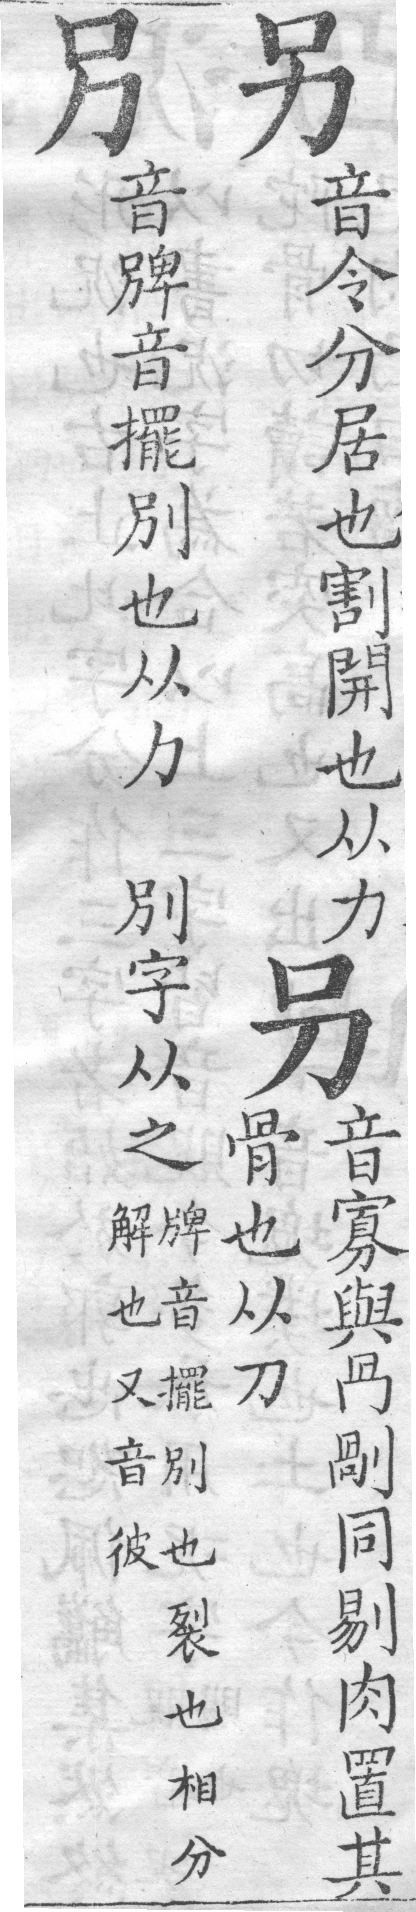 另
音令分居也割開也从力
叧
音寡與冎剮同剔肉置其
骨也从刀
叧
音牌音擺別也从力
別字从之
牌音擺別也裂也相分
解也又音彼